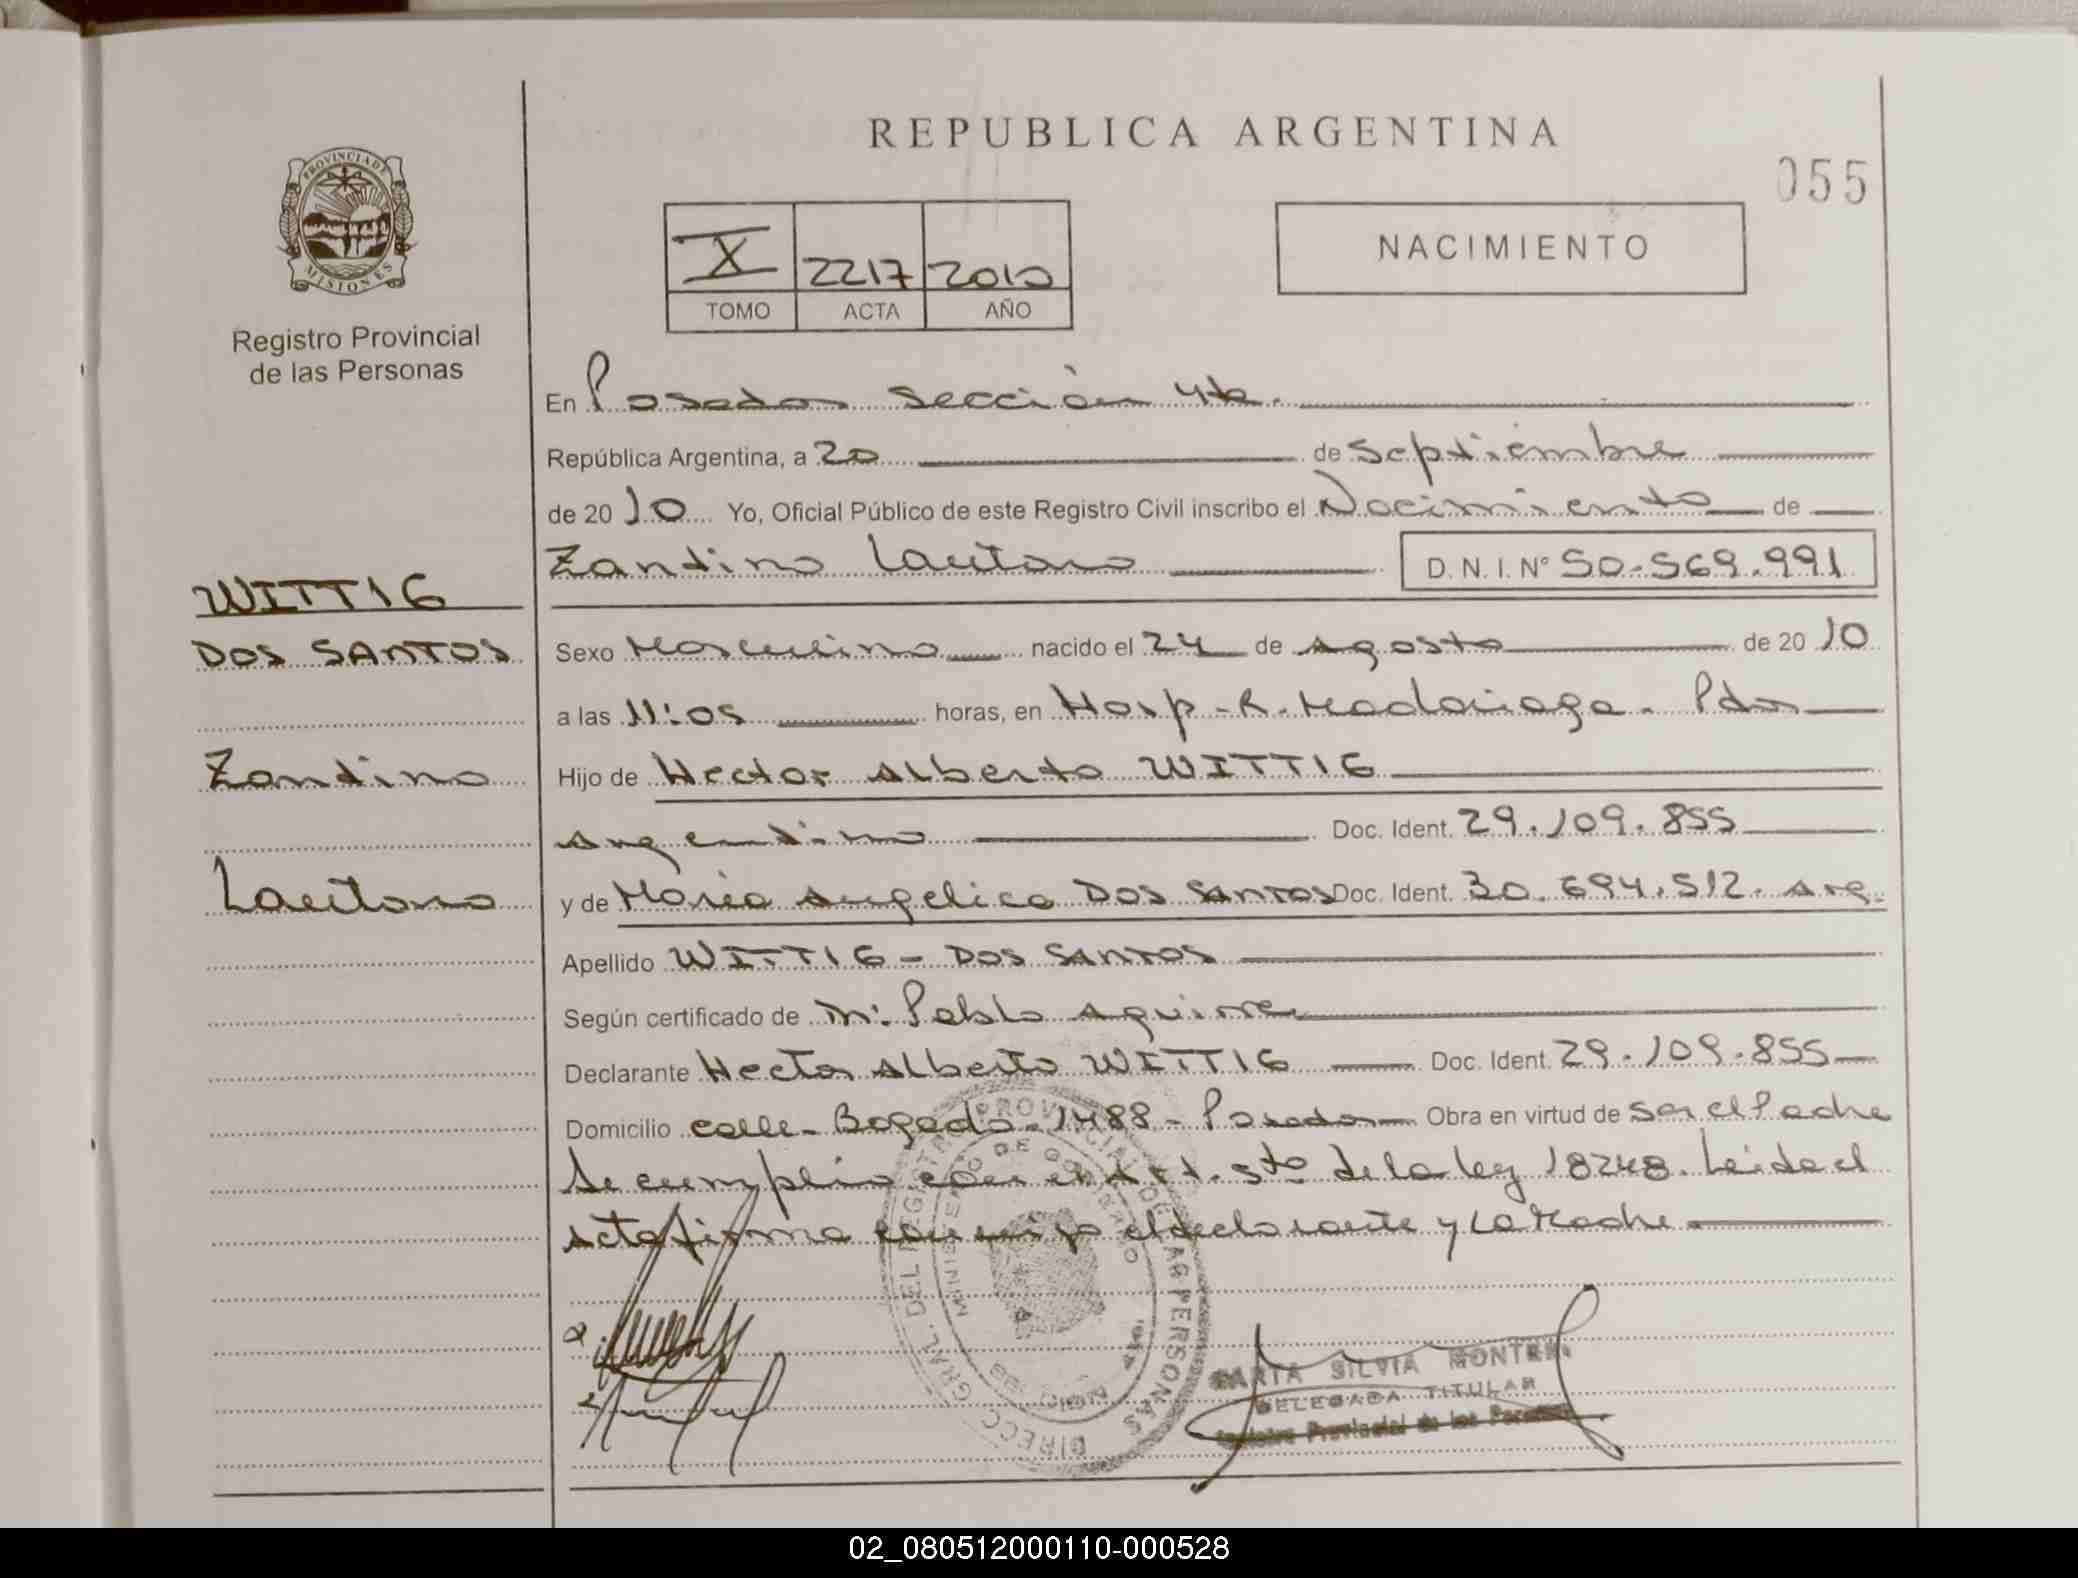 REPUBLICA ARGENTINA
055
PROVINCIA DE
MISIONES
Registro Provincial
de las Personas
X 2217 2010
TOMO ACTA AÑO
NACIMIENTO
En Posadas Sección 4ta.
República Argentina, a 20 de Septiembre
de 2010 Yo, Oficial Público de este Registro Civil inscribo el Nacimiento de
Zantino Lautaro D.N.I. Nº 50.569.991
WITTIG
DOS SANTOS
Zantino
Lautaro
Sexo Masculino nacido el 24 de Agosto de 2010
a las 11:05 horas, en Hosp - R. Madariaga. Pdas
Hijo de Hector Alberto WITTIG
Argentino Doc. Ident. 29.109.855
y de Maria Angelica DOS SANTOS Doc. Ident. 30.694.512. Arg.
Apellido WITTIG - DOS SANTOS
Según certificado de M: Pablo Aguirre
Declarante Hector Alberto WITTIG Doc. Ident. 29.109.855
Domicilio calle - Bogado - 1488 - Posadas Obra en virtud de ser el Padre
Se cumplio con el Art. 5to de la ley 18248. Leida el
Acta firma conmigo el declarante y La Madre
DIRECC. GRAL. DEL REGISTRO PROVINCIAL DE LAS PERSONAS
MINISTERIO DE GOBIERNO
SILVIA MONTIEL
DELEGADA TITULAR
Registro Provincial de las Personas
02_080512000110-000528